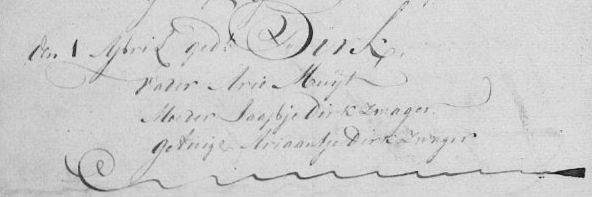 den 1 April ged: Dirk,
vader Arie Muijt
Moeder Jaapje Dirk Zwager
getuige Ariaantje Dirk Zwager